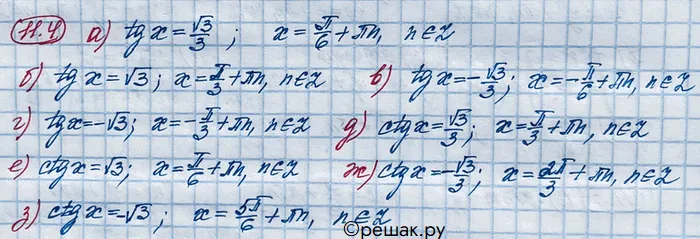 11.4 а) tg x = √3/3 ; x = π/6 + πn, n∈Z
б) tg x = √3; x = π/3 + πn, n∈Z в) tg x = -√3/3; x = -π/6 + πn, n∈Z
г) tg x = -√3; x = -π/3 + πn, n∈Z д) ctg x = √3/3; x = π/3 + πn, n∈Z
е) ctg x = √3; x = π/6 + πn, n∈Z ж) ctg x = -√3/3; x = 2π/3 + πn, n∈Z
з) ctg x = -√3; x = 5π/6 + πn, n∈Z
©решак.ру